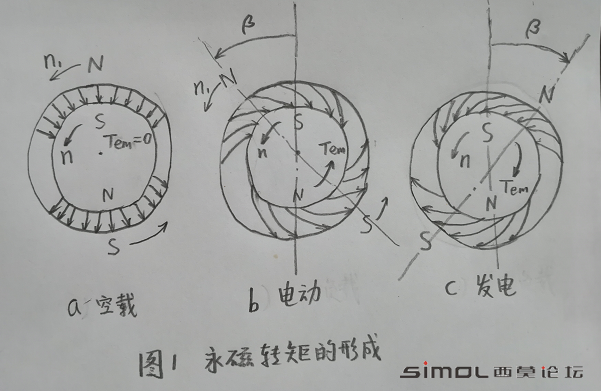 n₁ N
S
Tem=0
n
N
S
a 空载
β
n₁ N
S
n Tem
N
S
b 电动
β
N
S
n
Tem
N
S
c 发电
图1 永磁转矩的形成
SIMOL西莫论坛